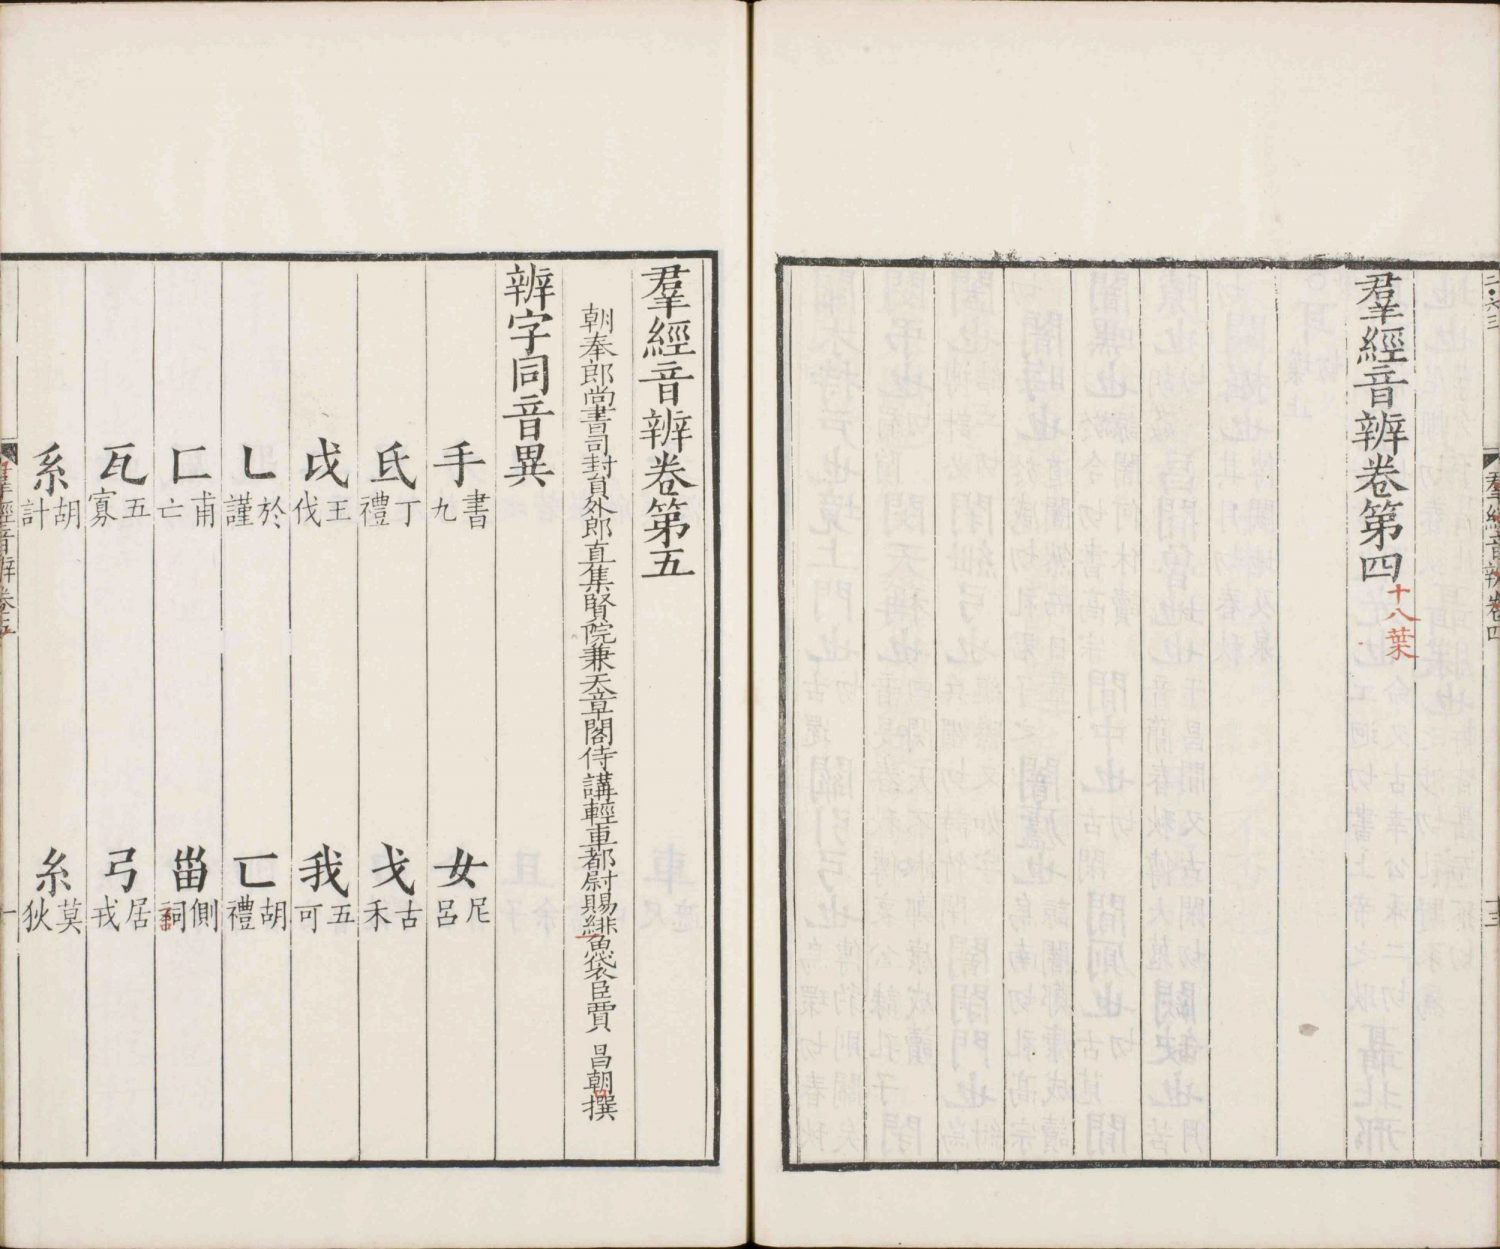 羣經音辨卷第四 十八葉
羣經音辨卷四
羣經音辨卷第五
朝奉郎尚書司封員外郎直集賢院兼天章閣侍講輕車都尉賜緋魚袋臣賈 昌朝 撰
辨字同音異
手書九 女尼呂
氐丁禮 戈古禾
戉王伐 我五可
乚於謹 匸胡禮
匚甫亡 甾側祠
瓦五寡 弓居戎
系胡計 糸莫狄
羣經音辨卷五
一